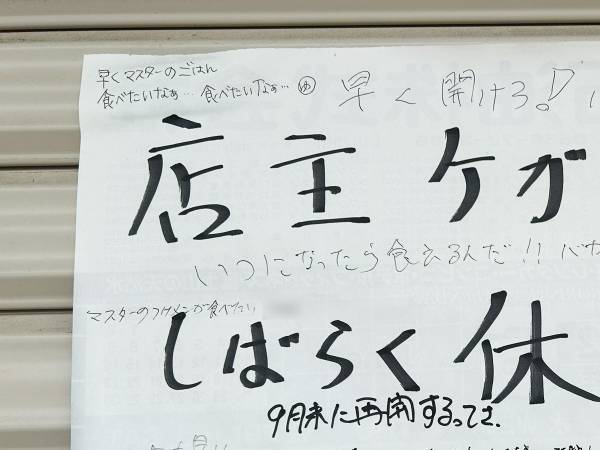 早くマスターのごはん
食べたいなぁ… 食べたいなぁ… ゆ
早く開けろ!
店主ケガ
いつになったら食えるんだ!! バカ
マスターのつけメンが食べたい
しばらく休
9月末に再開するってさ